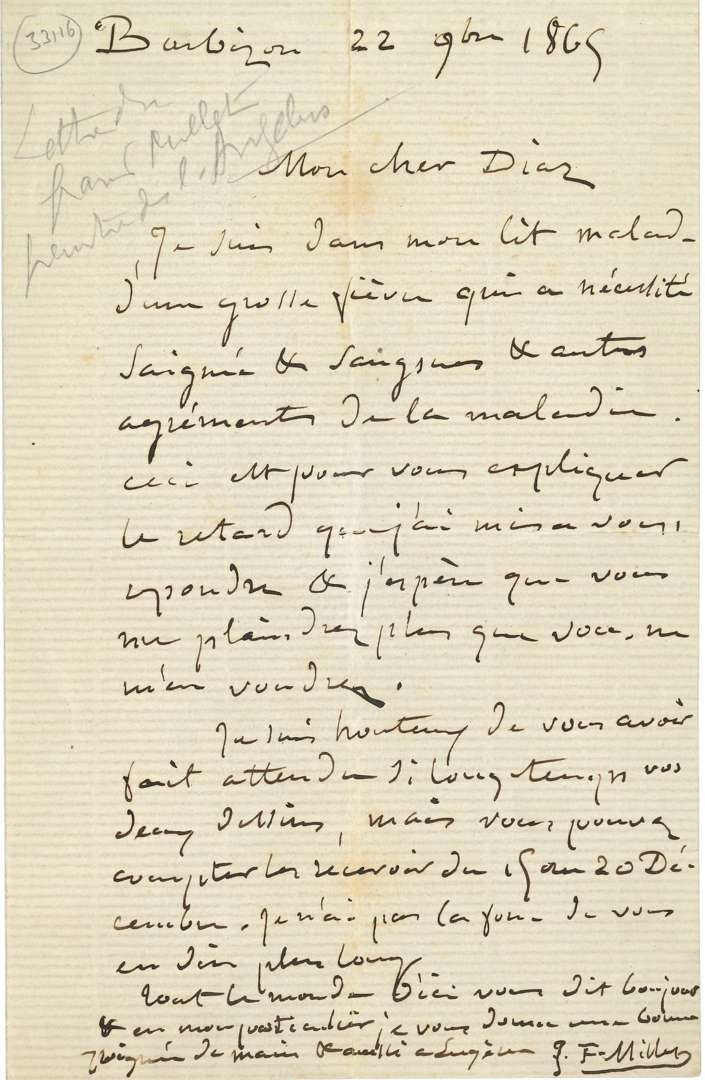 33116
Barbizon 22 9bre 1865
Lettre de
franç Millet
peintre de l'Angelus
Mon cher Diaz
Je suis dans mon lit malade
d'une grosse fièvre qui a nécessité
saignée & sangsues & autres
agréments de la maladie.
ceci est pour vous expliquer
le retard que j'ai mis a vous
repondre & j'espère que vous
me plaindrez plus que vous ne
m'en voudrez.
Je suis honteux de vous avoir
fait attendre si longtemps vos
deux dessins, mais vous pouvez
compter les recevoir du 15 au 20 Dé-
cembre. Je n'ai pas la force de vous
en dire plus long
Tout le monde d'ici vous dit bonjour
& en mon particulier je vous donne une bonne
poignée de main & aussi a Eugène J. F. Millet